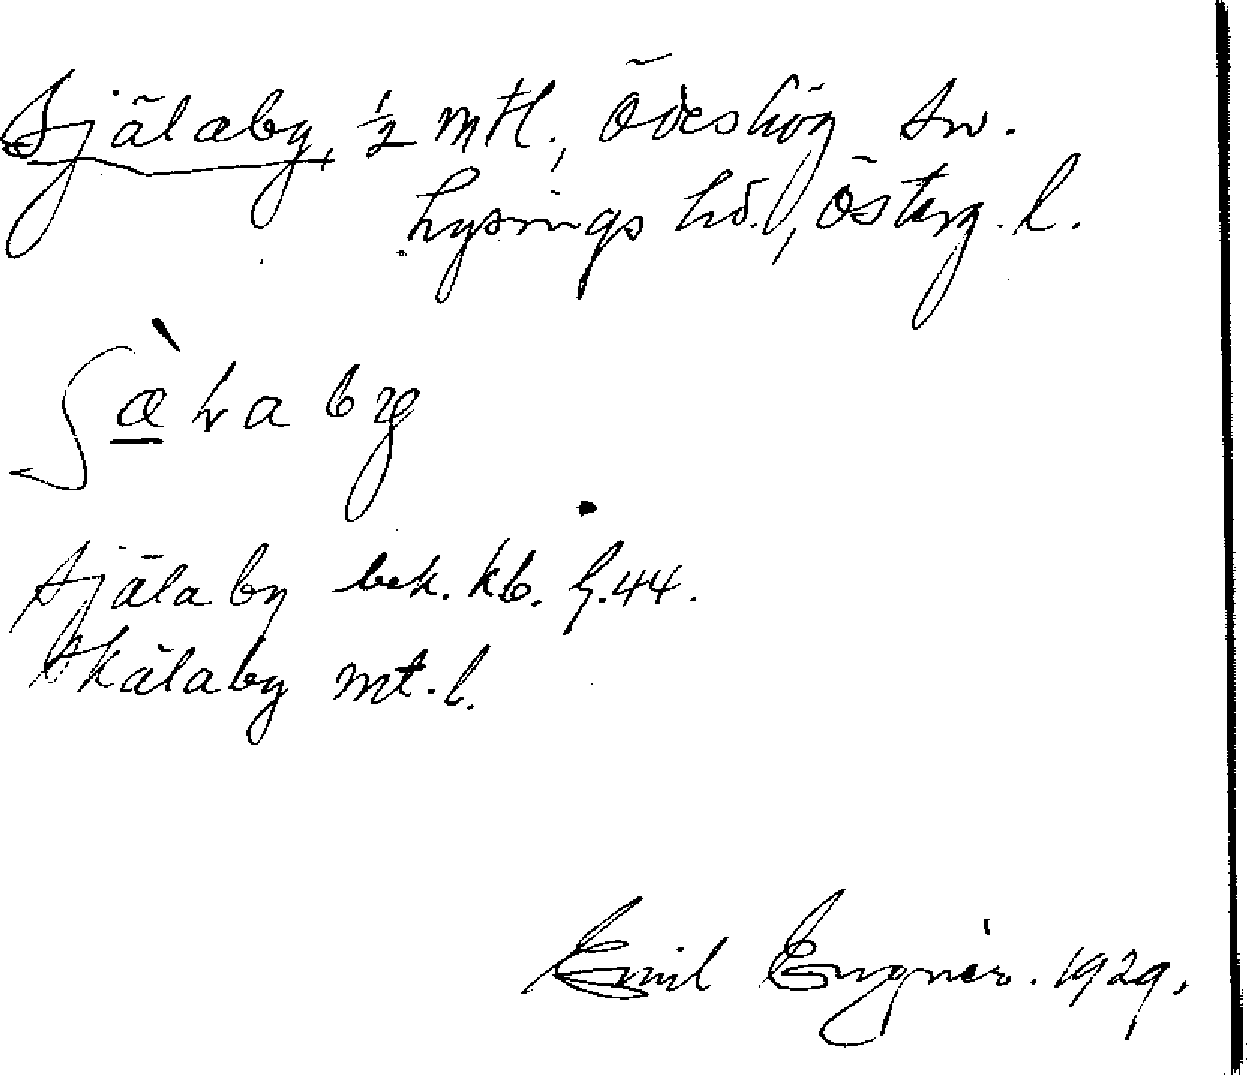 Själaby, ½ mtl., Ödeshög sn.
Lysings hd., Österg. l.
ʃæ̀laby
Själaby bek. kb. h. 44.
Skälaby mt. l.
Emil Engnér. 1929.